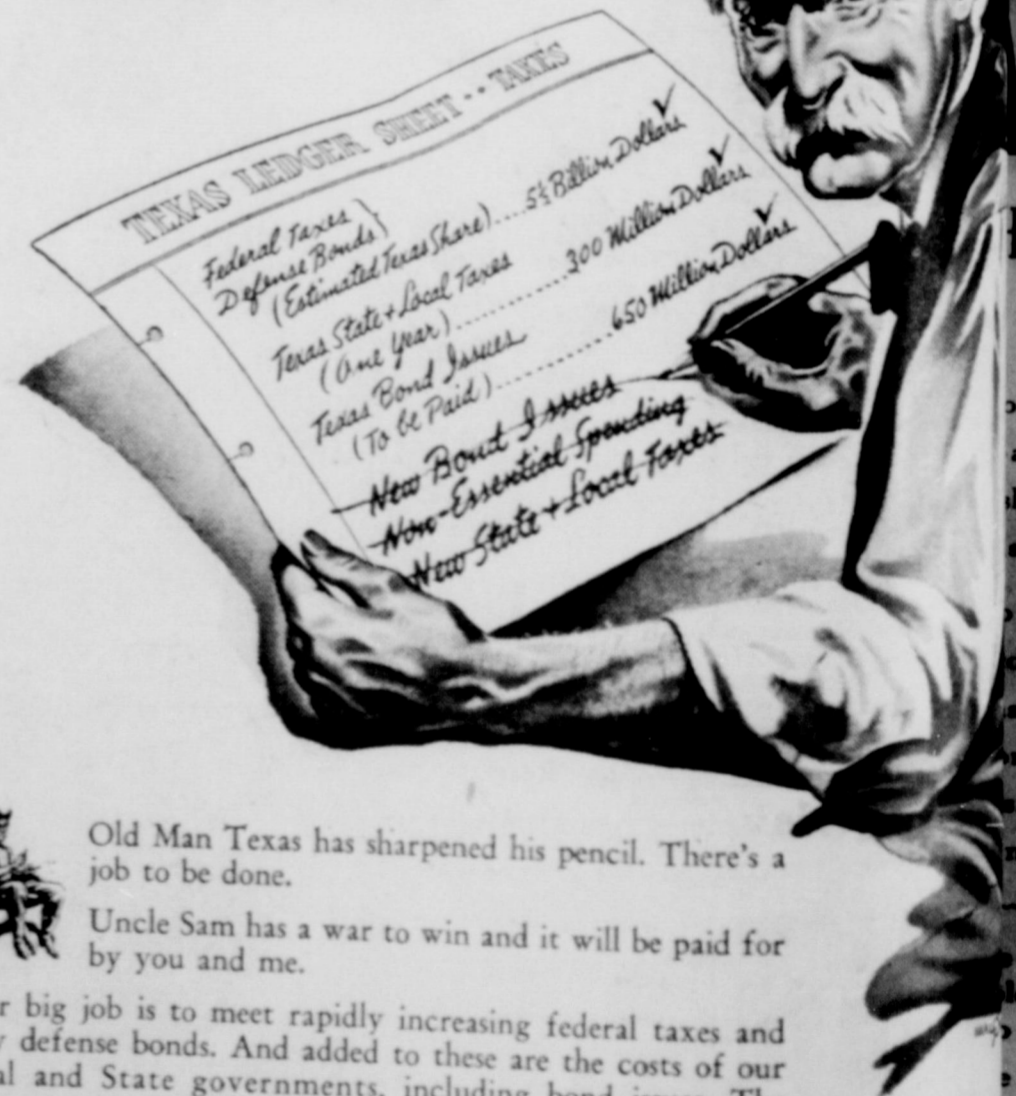 TEXAS LEDGER SHEET -- TAXES
Federal Taxes }
Defense Bonds }
(Estimated Texas Share).... 5½ Billion Dollars ✓
Texas State & Local Taxes
(One Year).............. 300 Million Dollars ✓
Texas Bond Issues
(To be Paid)............ 650 Million Dollars ✓
New Bond Issues
Non-Essential Spending
New State & Local Taxes
Old Man Texas has sharpened his pencil. There's a
job to be done.
Uncle Sam has a war to win and it will be paid for
by you and me.
big job is to meet rapidly increasing federal taxes and
defense bonds. And added to these are the costs of our
and State governments, including bond